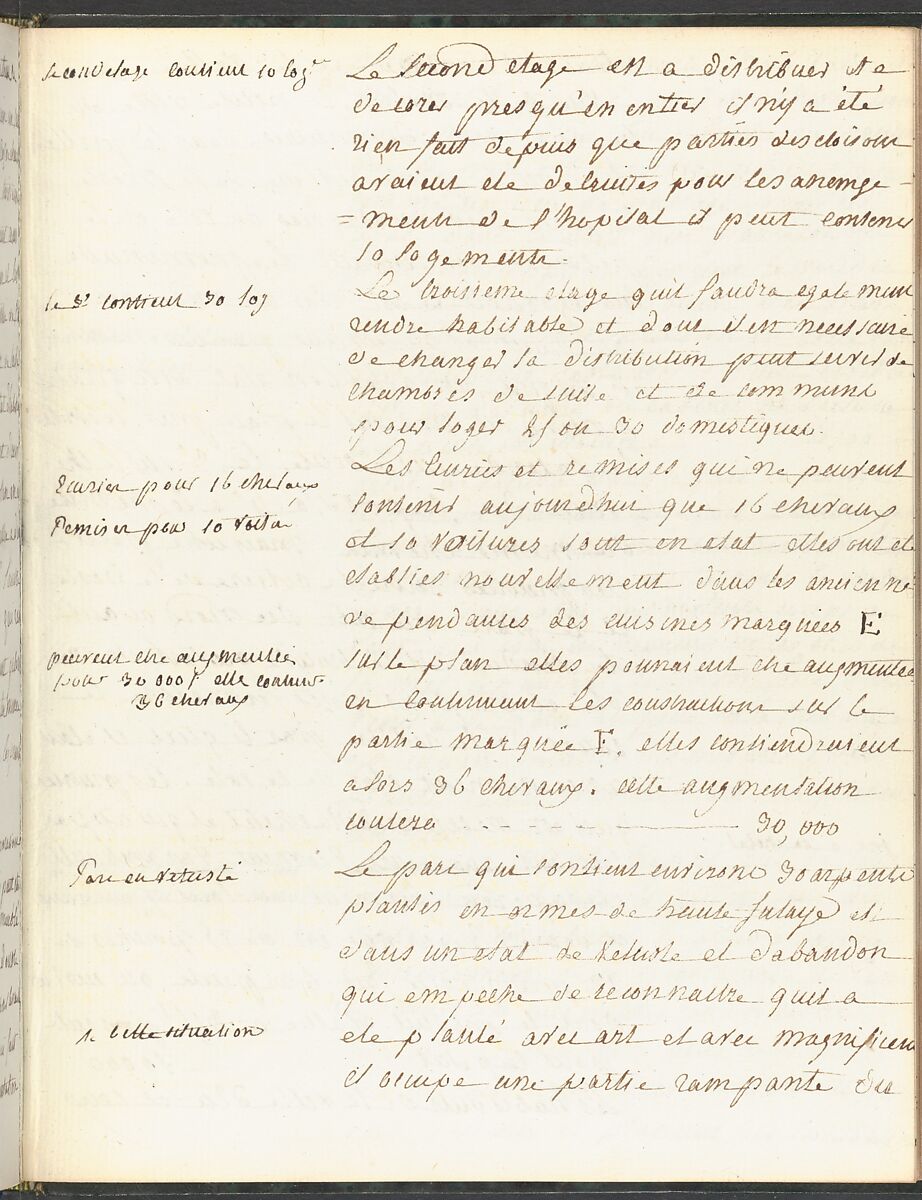 second etage contient 10 log.ts
Le second etage est a distribuer et a
decorer presqu'en entier il n'y a été
rien fait depuis que parties des cloisons
avaient ete detruites pour les arremge
= ments de l'hopital il peut contenir
10 logements.
le 3e contient 30 log
Le troisieme etage quil faudra egalement
rendre habitable et dont il est necessaire
de changer la distribution peut servir de
chambres de suite et de communs
pour loger 25 ou 30 domestiques.
Ecuries pour 16 chevaux
Remises pour 10 voitu.
Les Ecuries et remises qui ne peuvent
contenir aujourdhui que 16 chevaux
et 10 voitures sont en etat elles ont ete
etablies nouvellement dans les anciennes
dependances des cuisines marquées E
peuvent etre augmentées
pour 30 000f elle contiend.
36 chevaux
sur le plan elles pourraient etre augmentées
en continuant les constructions sur la
partie marquée F. elles contiendraient
alors 36 chevaux. cette augmentation
coutera - - - - - 30,000
Parc en vetusté
Le parc qui contient environs 30 arpents
plantés en ormes de haute futaye est
dans un etat de Vetusté et dabandon
qui empeche de reconnaitre quil a
sa cette situation
ete planté avec art et avec magnificence
il occupe une partie rampante du